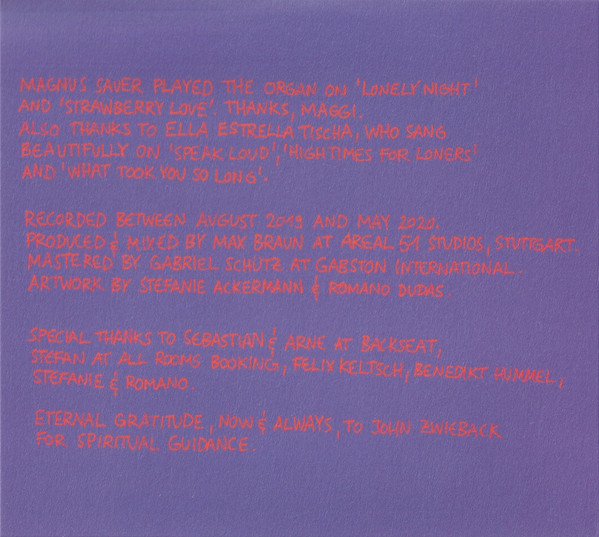 MAGNUS SAUER PLAYED THE ORGAN ON 'LONELY NIGHT'
AND 'STRAWBERRY LOVE'. THANKS, MAGGI.
ALSO THANKS TO ELLA ESTRELLA TISCHA, WHO SANG
BEAUTIFULLY ON 'SPEAK LOUD', 'HIGH TIMES FOR LONERS'
AND 'WHAT TOOK YOU SO LONG'.
RECORDED BETWEEN AUGUST 2019 AND MAY 2020.
PRODUCED & MIXED BY MAX BRAUN AT AREAL 51 STUDIOS, STUTTGART.
MASTERED BY GABRIEL SCHÜTZ AT GABSTON INTERNATIONAL.
ARTWORK BY STEFANIE ACKERMANN & ROMANO DUDAS.
SPECIAL THANKS TO SEBASTIAN & ARNE AT BACKSEAT,
STEFAN AT ALL ROOMS BOOKING, FELIX KELTSCH, BENEDIKT HUMMEL,
STEFANIE & ROMANO.
ETERNAL GRATITUDE, NOW & ALWAYS, TO JOHN ZWIEBACK
FOR SPIRITUAL GUIDANCE.